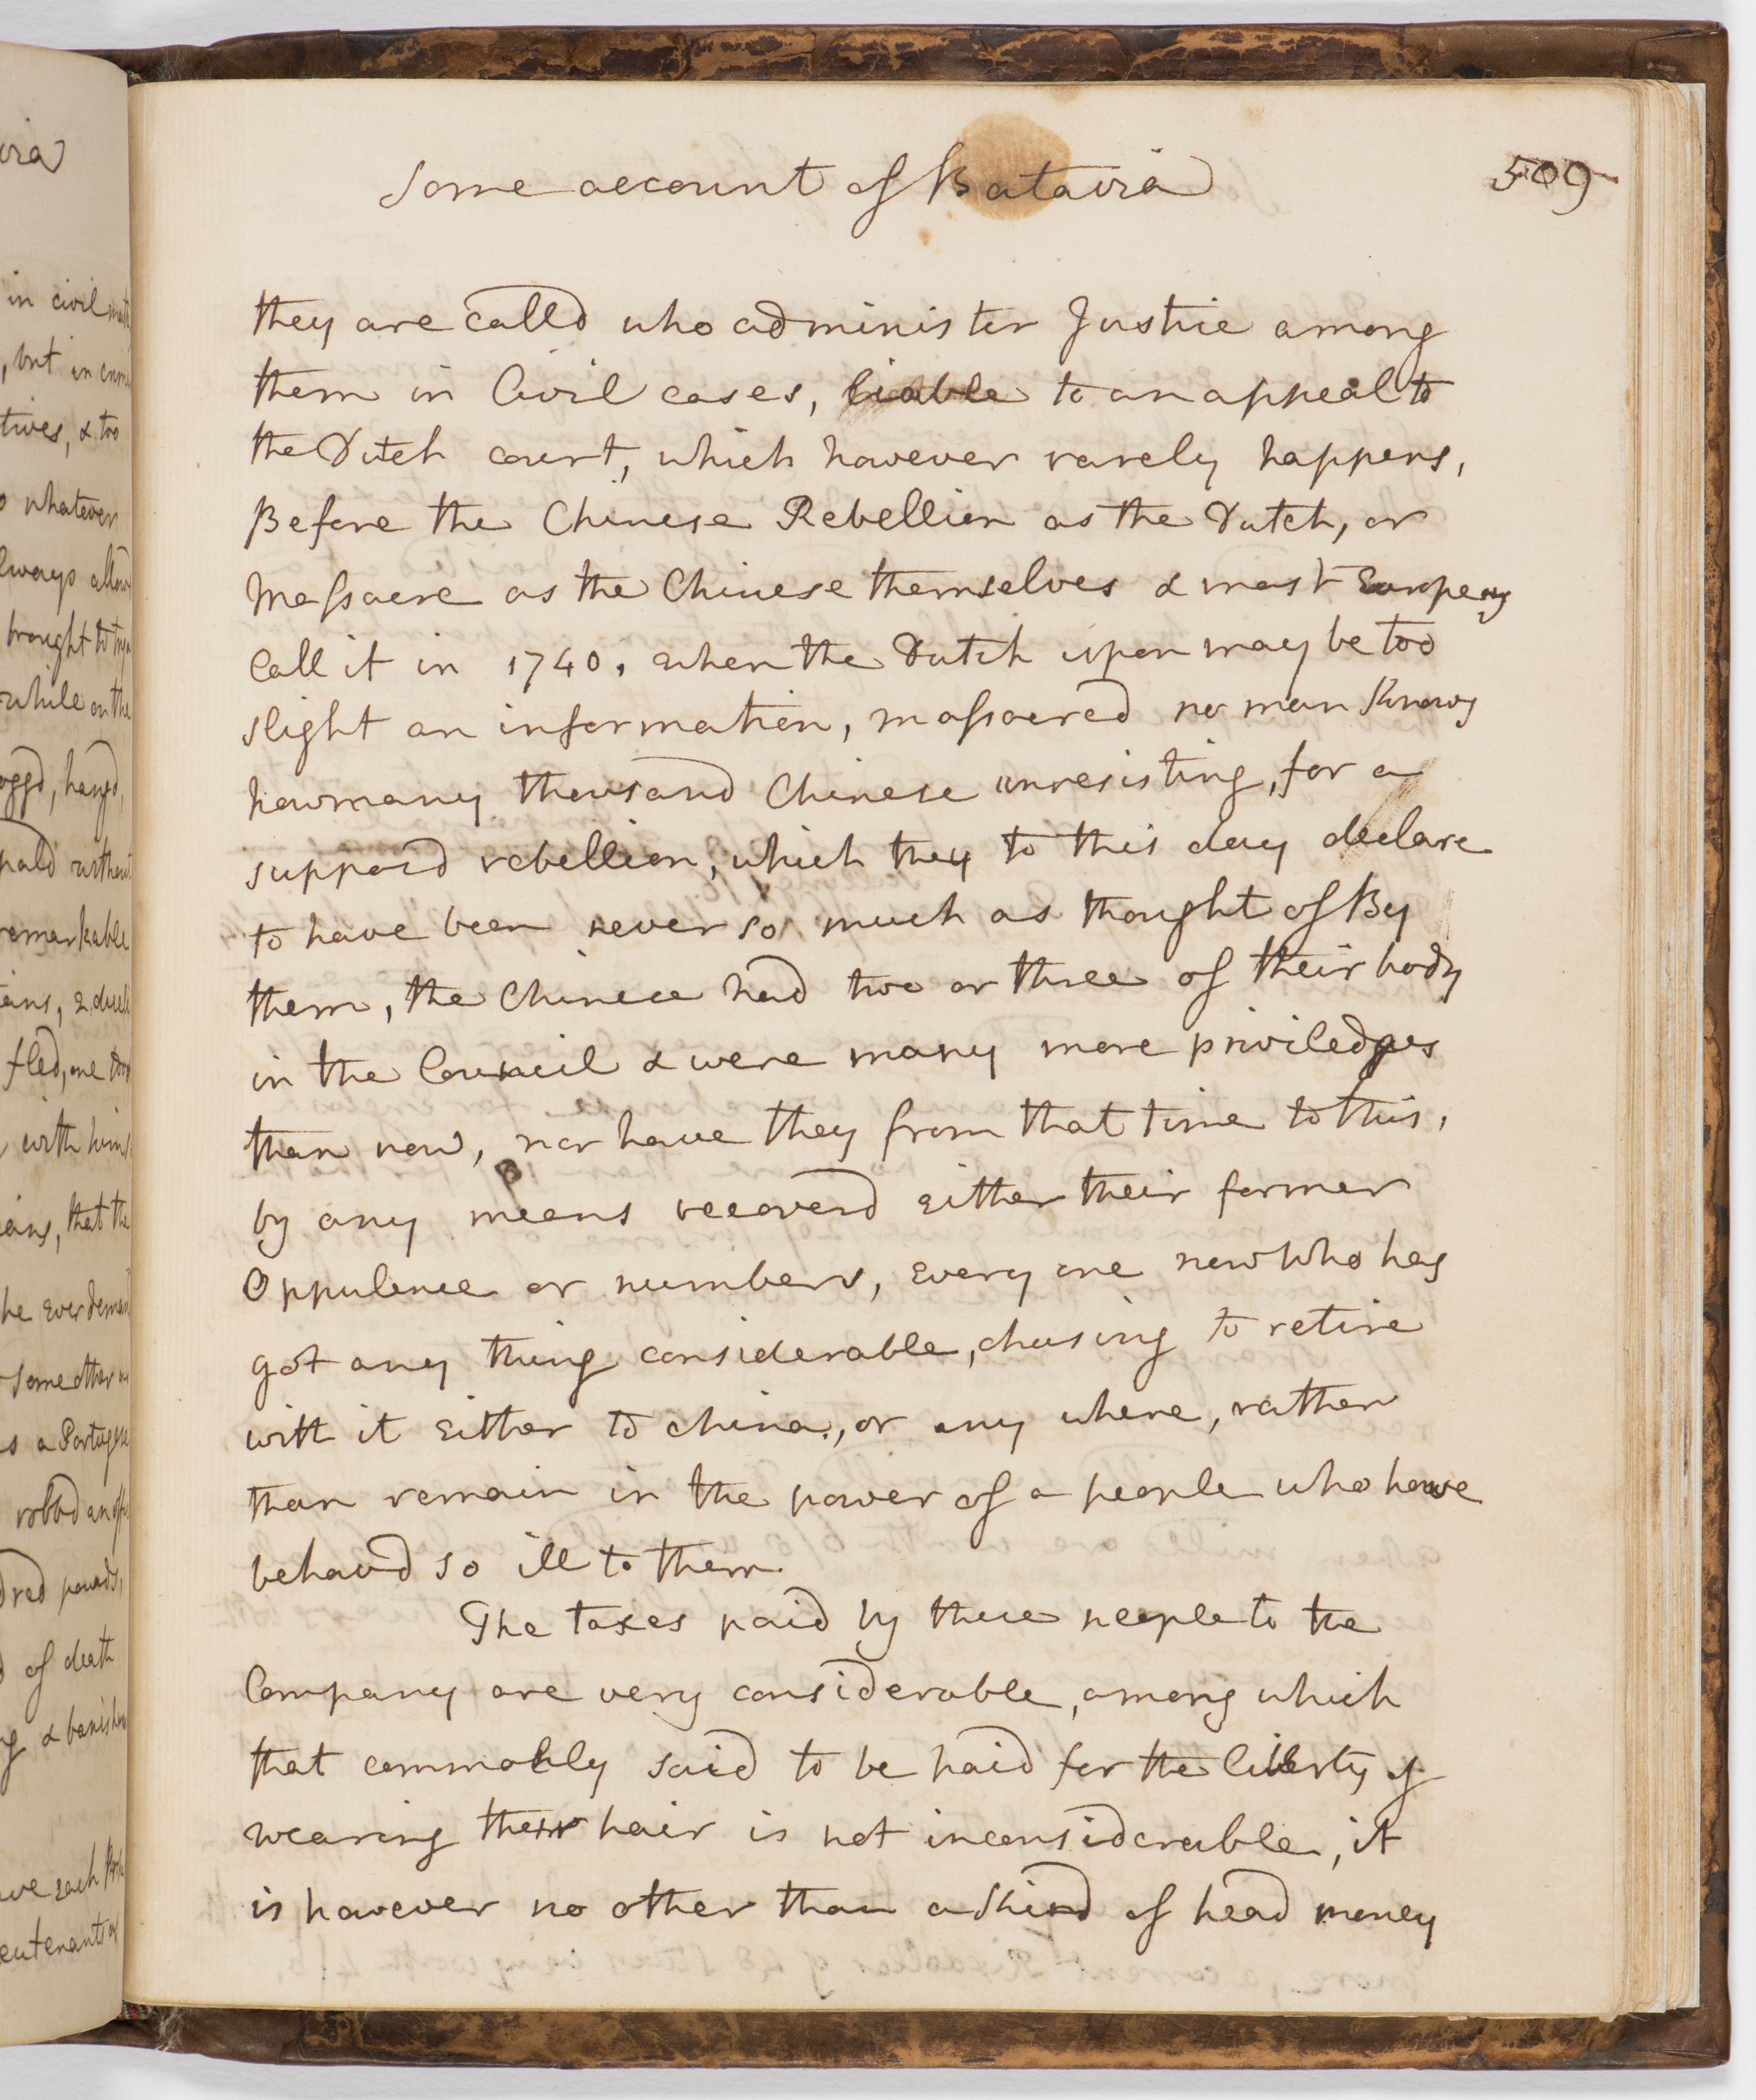 Some account of Batavia
509
they are calld who administer Justice among
them in Civil cases, liable to an appeal to
the Dutch court, which however rarely happens,
Before the Chinese Rebellion as the Dutch, or
Massacre as the Chinese themselves & most Europeans
Call it in 1740, when the Dutch upon may be too
slight an information, massacred no man knows
how many thousand Chinese unresisting, for a
supposd rebellion, which they to this day declare
to have been never so much as thought of By
them, the Chinese had two or three of their body
in the Council & were many more priviledges
than now, nor have they from that time to this,
by any means recoverd Either their former
Oppulence or numbers, Every one now Who has
got any thing considerable, chusing to retire
with it Either to China, or any where, rather
than remain in the power of a people who have
behavd so ill to them.
The taxes paid by these people to the
Company are very considerable, among which
that commonly said to be paid for the liberty of
wearing their hair is not inconsiderable, it
is however no other than a kind of head money
via
in civil
, but in
tives, & too
whatever
lways allow
brought to
while on the
oggd, hangd,
pald without
remarkable
fled, one
with him
, that the
he Ever
some other
a Portugese
robbd an
dred pounds,
of death
& banish
we Each
eutenants